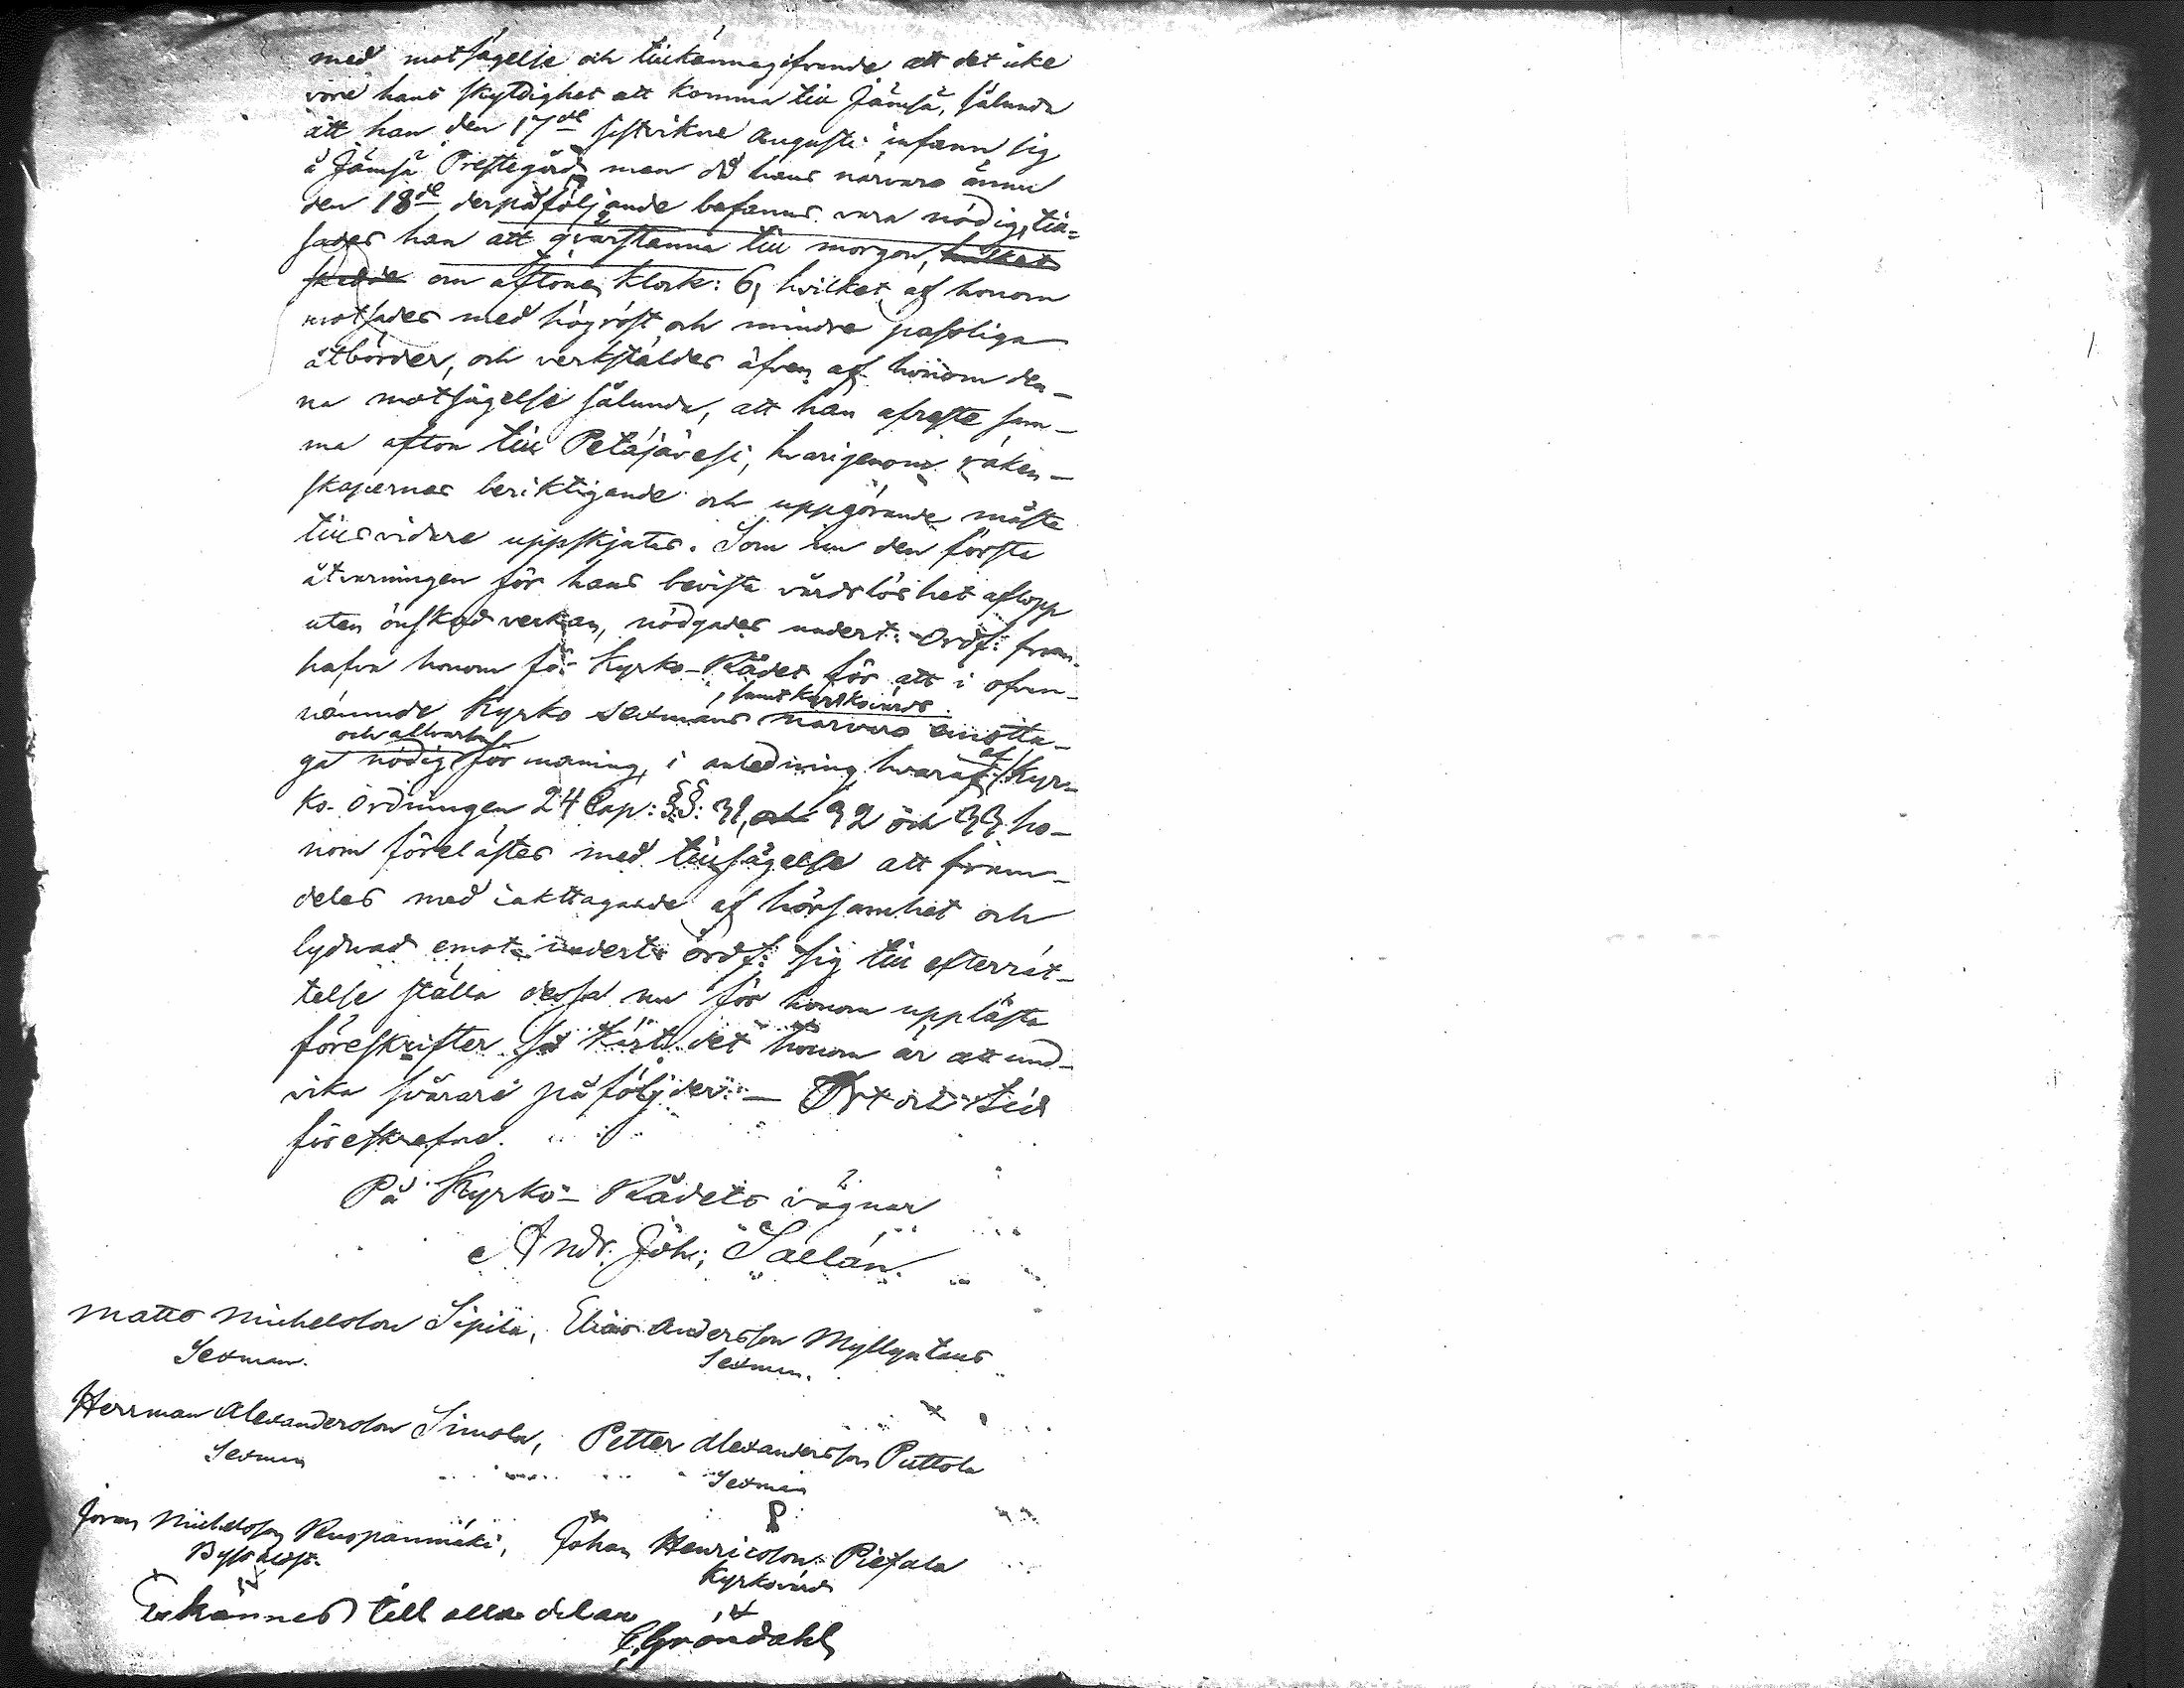 med motsägelse och tillkännagifvande att det icke
vore hans skyldighet att komma till Jämsä, sålunda
att han den 17de sistvikne Augusti infann sig
å Jämsä Prestegård, men då hans närvaro ännu
den 18de derpåföljande befanns vara nödig, till=
sades han att qvarstanna till morgon,
om aftonen klock: 6, hvilket af honom
motsades med högröst och mindre passliga
åtbörder, och verkstäldes äfven af honom den-
na motsägelse sålunda, att han afreste sam-
ma afton till Petäjävesi, hvarigenom räken-
skapernas beriktigande och uppgörande måste
tillsvidare uppskjutas. Som nu den första
åtvarningen för hans bevista vårdslöshet aflopp
utan önskad verkan, nödgades undert: Ordf: fram-
hafva honom för Kyrko-Rådet för att i ofvan-
nämnde Kyrko Sexmäns, samt Kyrkovärds närvaro emotta-
ga nödig och allvarlig förmaning, i anledning hvaraf af Kyr-
ko-Ordningen 24 Cap: §§: 31, och 32 och 33 ho-
nom förelästes med tillsägelse att fram-
deles med iakttagande af hörsamhet och
lydnad emot undert: Ordf: sig till efterrät-
telse ställa dessa nu för honom upplästa
föreskrifter så kärt det honom är att und-
vika svårare påföljder. — Ort och tid
föreskrefne.
På Kyrko-Rådets vägnar
Andr. Joh: Saelán.
Matts Michelsson Sipilä, Elias Andersson Myllyntaus
Sexman. Sexman.
Herrman Alexandersson Simola, Petter Alexandersson Puttola
Sexman Sexman
Jöran Michelsson Ruspanmäki, Johan Henricsson Pietala
Kyrkovärd
Erkännes till alla delar
C. Gröndahl